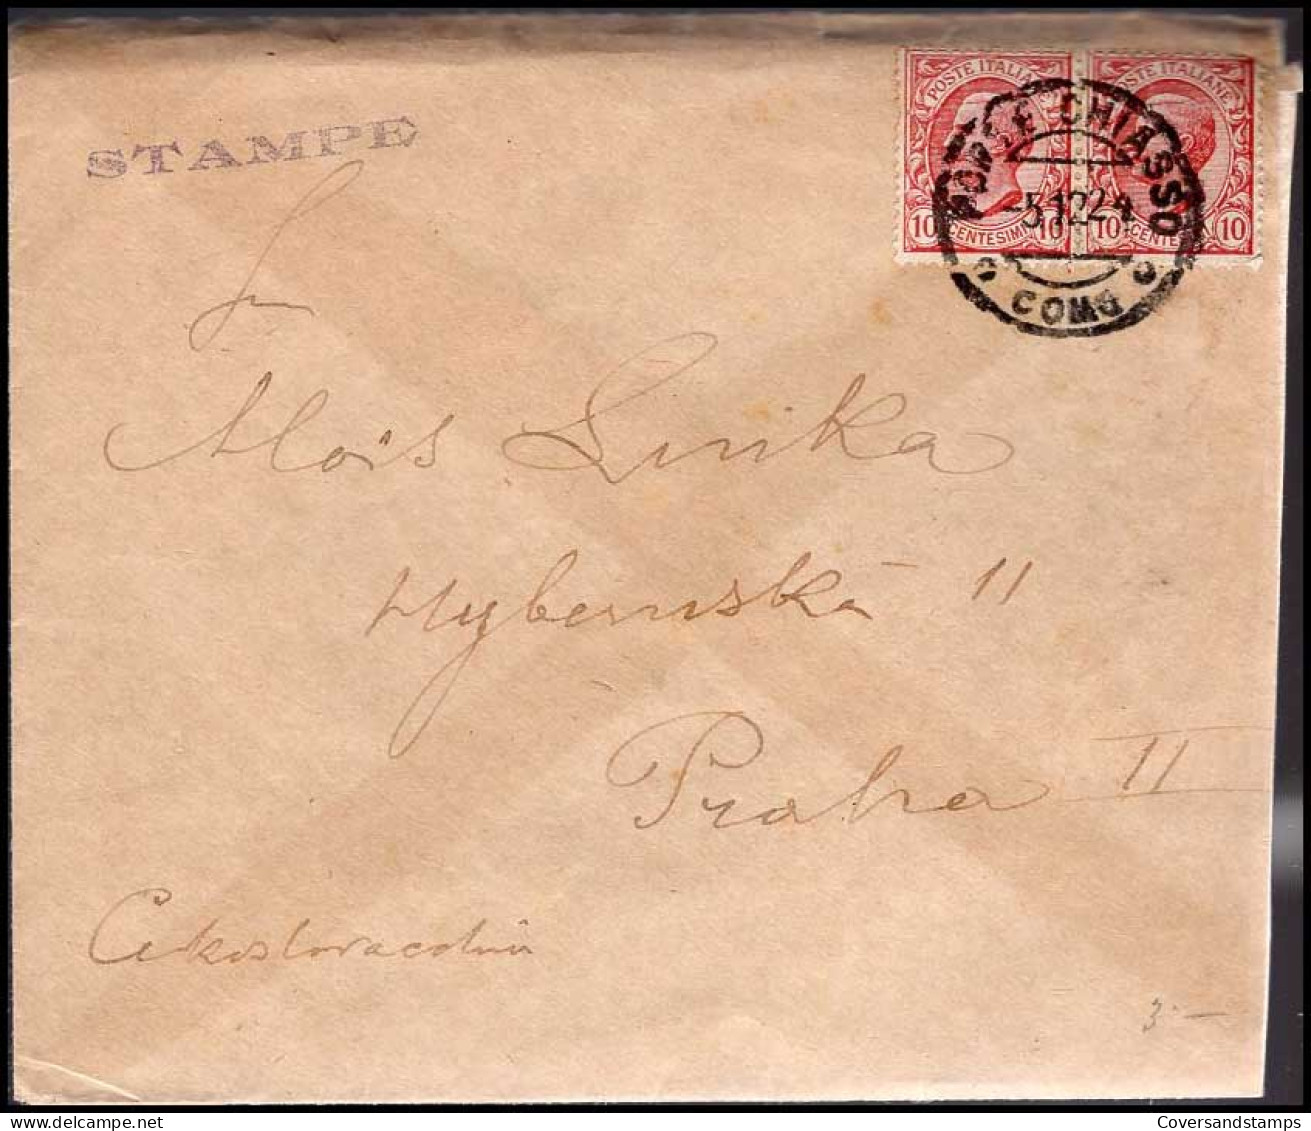 STAMPE
POSTE ITALIANE POSTE ITALIANE
PONTE CHIASSO
-5.12.24
10 CENTESIMI 10 10 CENTESIMI 10
COMO
Alois Linka
Hybernská 11
Praha II
3.-
Coversandstamps